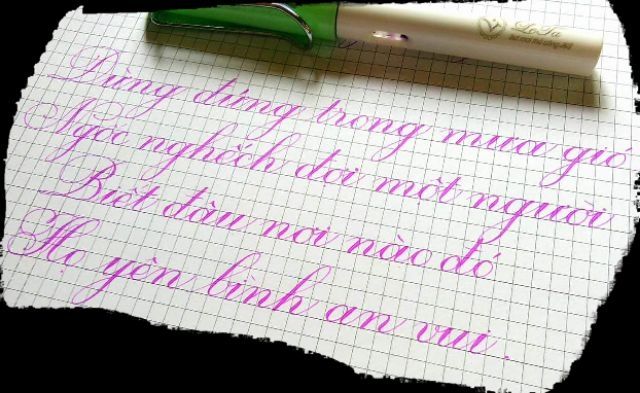 LeTa
Đừng đứng trong mưa gió
Ngốc nghếch đợi một người
Biết đâu nơi nào đó
Họ yên bình an vui.